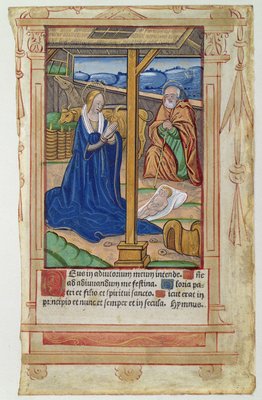 Deus in adiutorium meum intende. Dñe
ad adiuuandum me festina. Gloria pa
tri et filio et spiritui sancto. Sicut erat in
principio et nunc et semper et in secula. Hymnus.